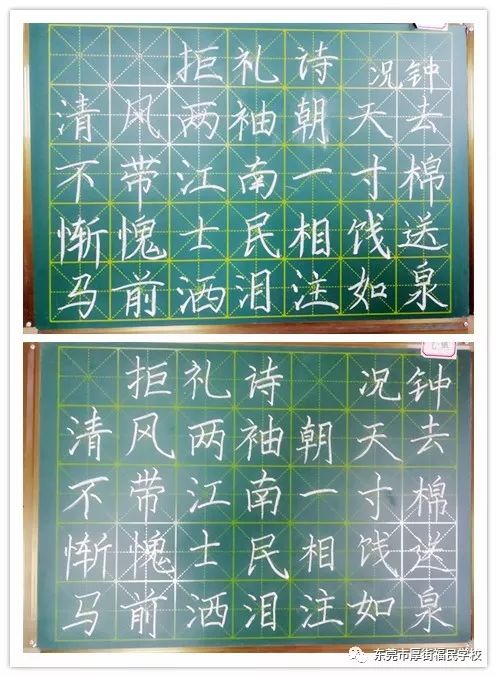 拒礼诗 况钟
清风两袖朝天去
不带江南一寸棉
惭愧士民相饯送
马前洒泪注如泉
拒礼诗 况钟
清风两袖朝天去
不带江南一寸棉
惭愧士民相饯送
马前洒泪注如泉
东莞市厚街福民学校